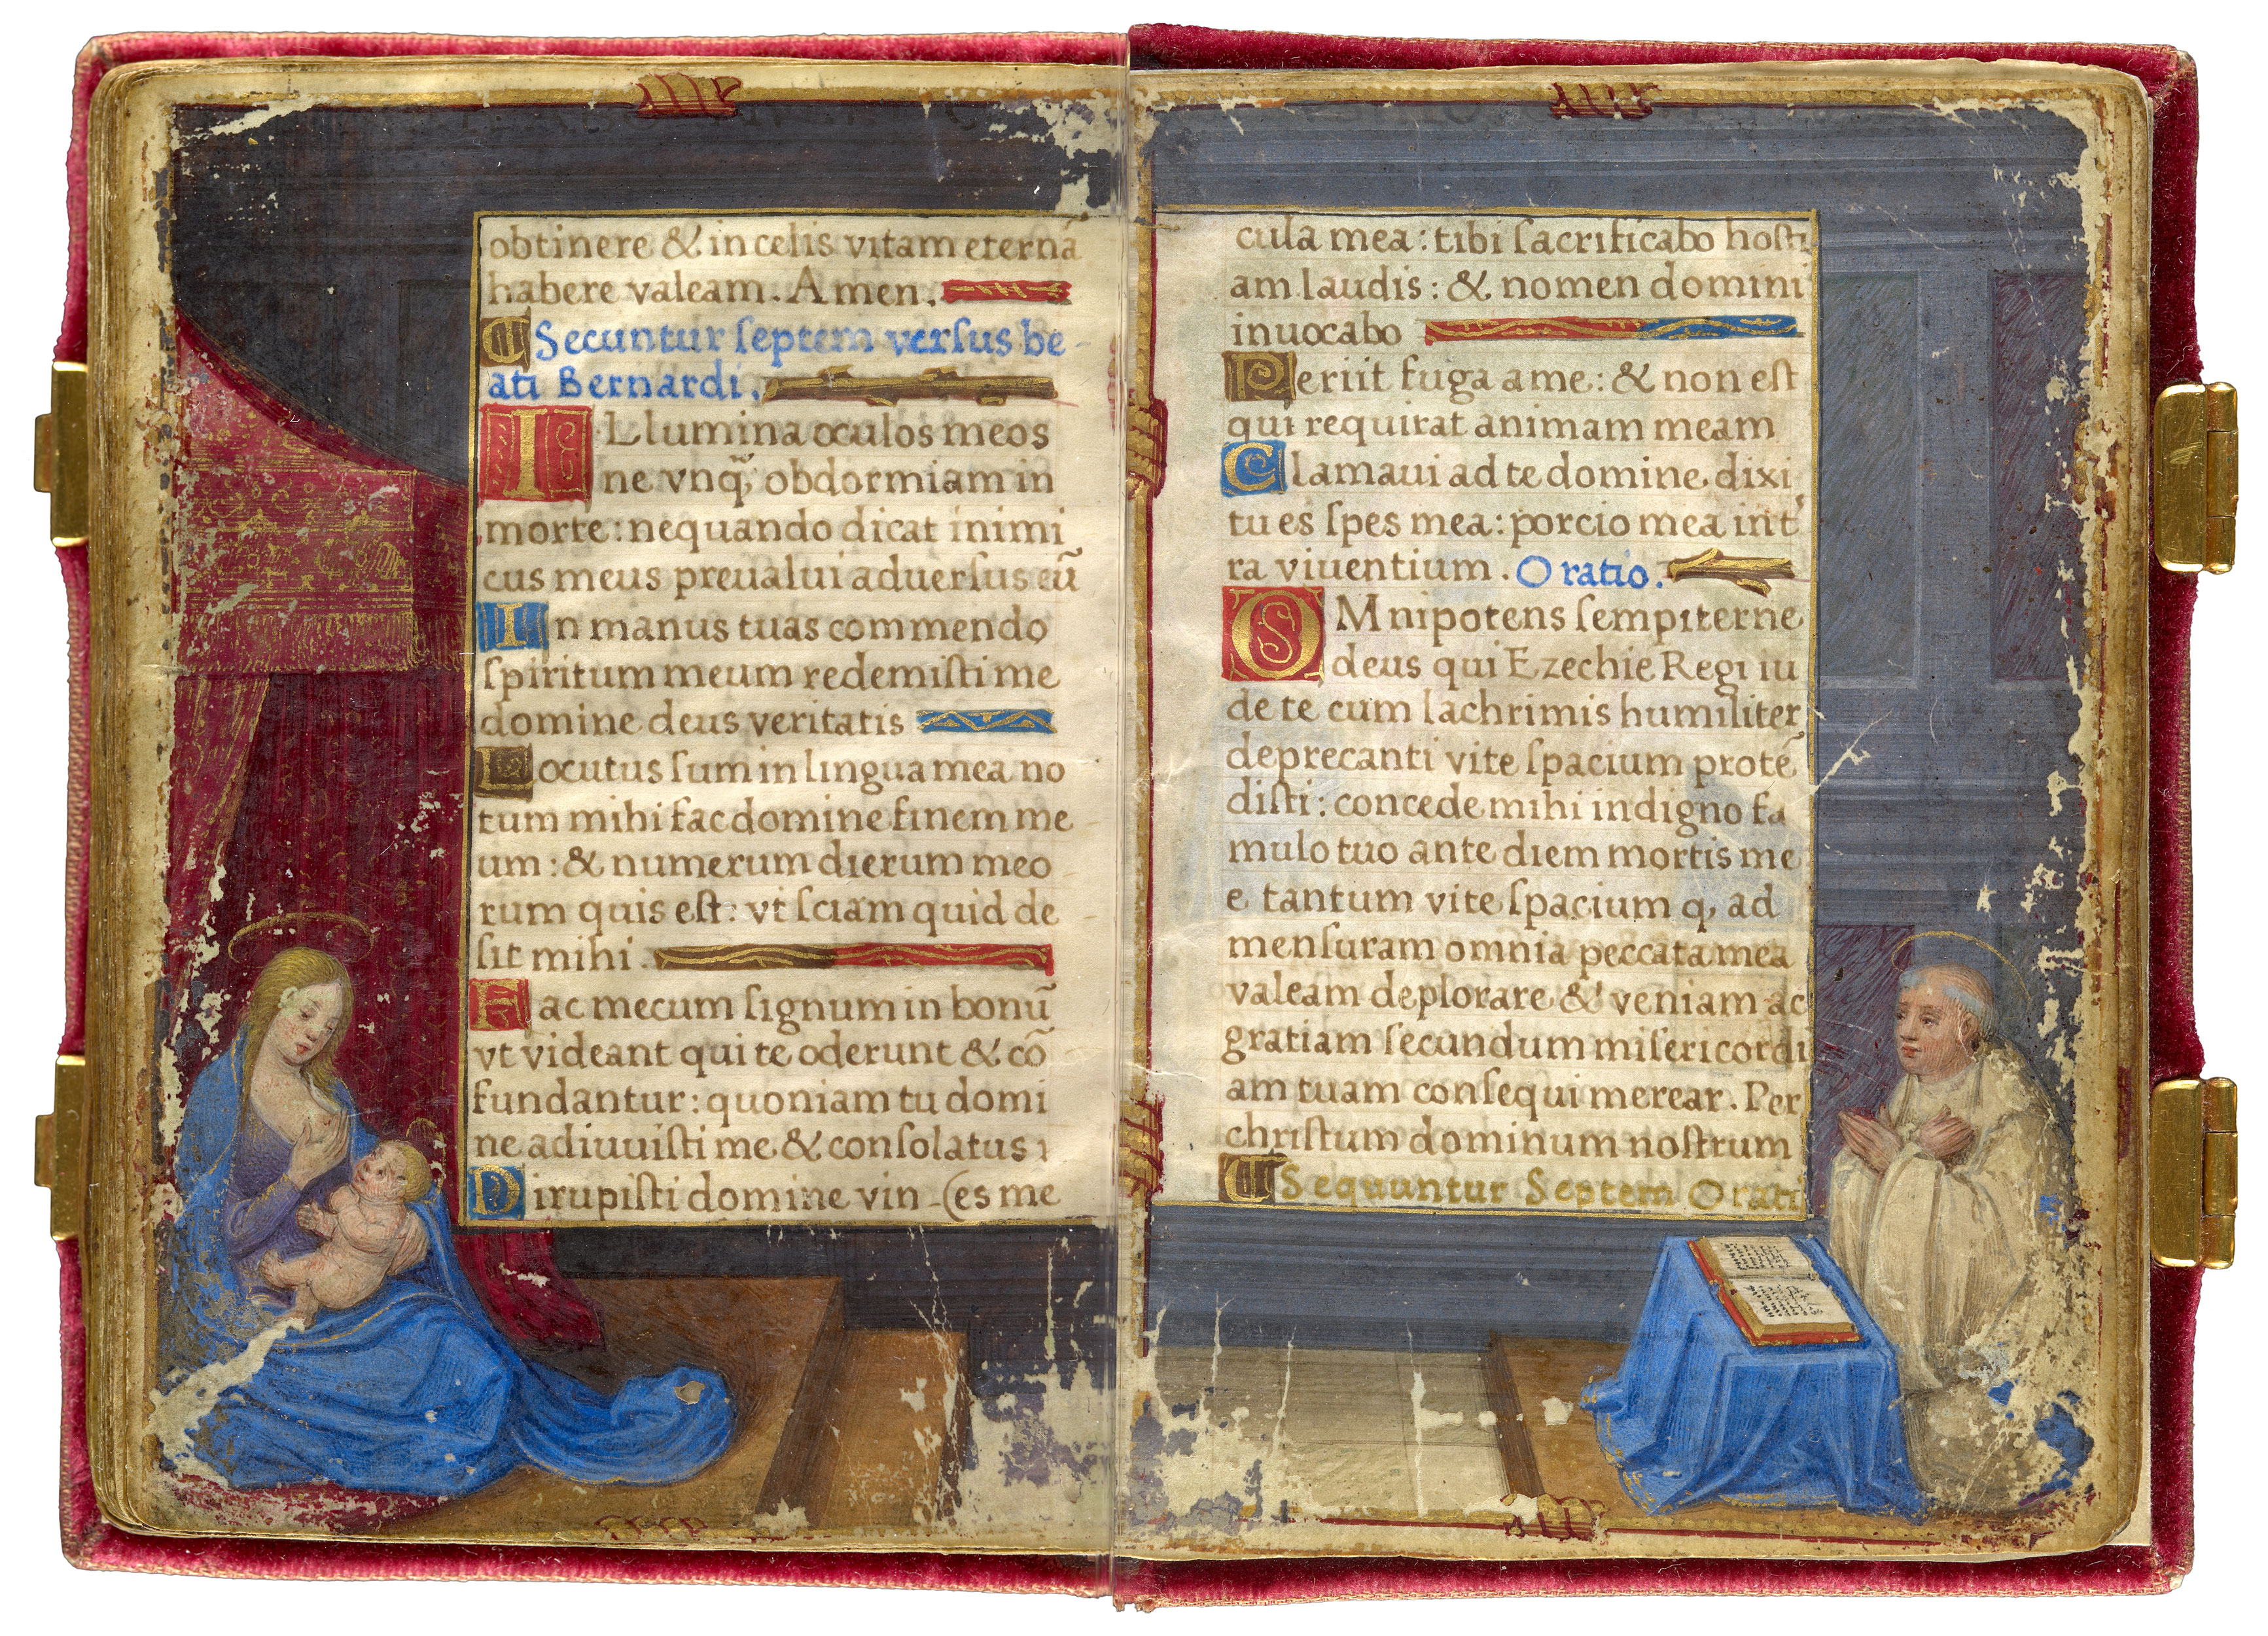 obtinere & in celis vitam eternā
habere valeam. Amen.
Secuntur ſeptem verſus be
ati Bernardi.
ILlumina oculos meos
ne vnq̃ obdormiam in
morte: nequando dicat inimi
cus meus preualui aduerſus eū
In manus tuas commendo
ſpiritum meum redemiſti me
domine deus veritatis
Locutus ſum in lingua mea no
tum mihi fac domine finem me
um: & numerum dierum meo
rum quis eſt: vt ſciam quid de
ſit mihi.
Fac mecum ſignum in bonū
vt videant qui te oderunt & cō
fundantur: quoniam tu domi
ne adiuuiſti me & conſolatus
Dirupiſti domine vin (es me
cula mea: tibi ſacrificabo hoſti
am laudis: & nomen domini
inuocabo
Periit fuga a me: & non eſt
qui requirat animam meam
Clamaui ad te domine dixi
tu es ſpes mea: porcio mea int'
ra viuentium. Oratio.
OMnipotens ſempiterne
deus qui Ezechie Regi iu
de te cum lachrimis humiliter
deprecanti vite ſpacium protē
diſti: concede mihi indigno fa
mulo tuo ante diem mortis me
e tantum vite ſpacium q, ad
menſuram omnia peccata mea
valeam deplorare & veniam ac
gratiam ſecundum miſericordi
am tuam conſequi merear. Per
chriſtum dominum noſtrum
Sequuntur Septem Orati